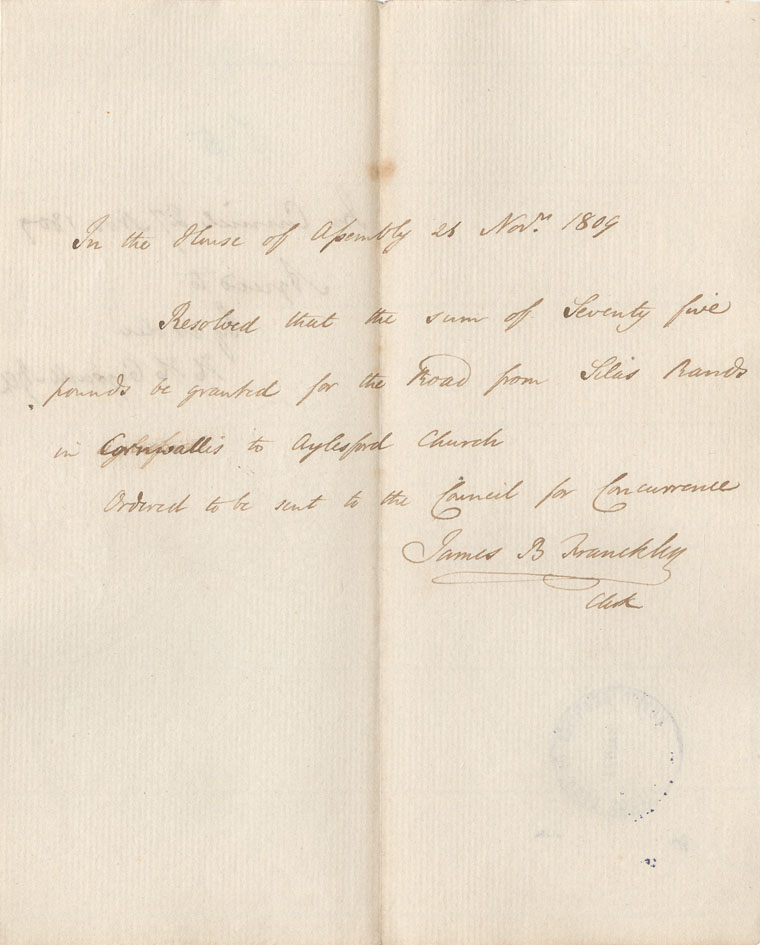 In the House of Assembly 28 Novr. 1809
Resolved that the sum of Seventy five
pounds be granted for the Road from Silas Rands
in Cornwallis to Aylesford Church
Ordered to be sent to the Council for Concurrence
James B Franckly
Clerk